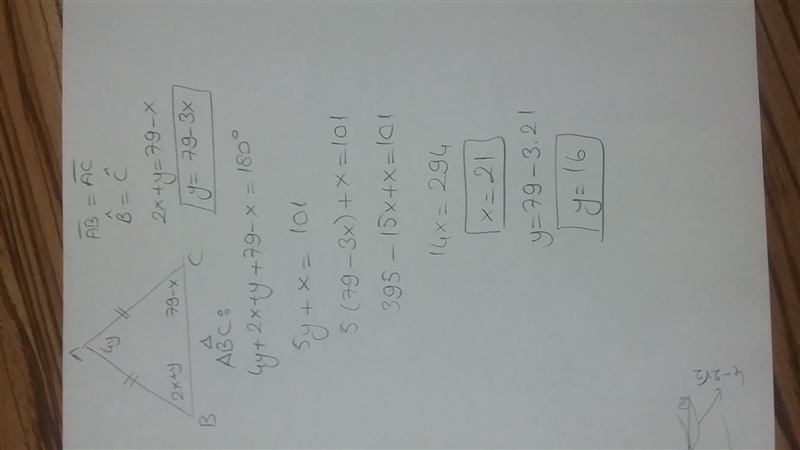 A
4y
2x+y
79-x
B
C
AB = AC
B̂ = Ĉ
2x+y=79-x
y = 79-3x
ABC:
4y+2x+y+79-x = 180°
5y + x = 101
5.(79-3x)+x=101
395-15x+x=101
14x = 294
x = 21
y=79-3.21
y=16